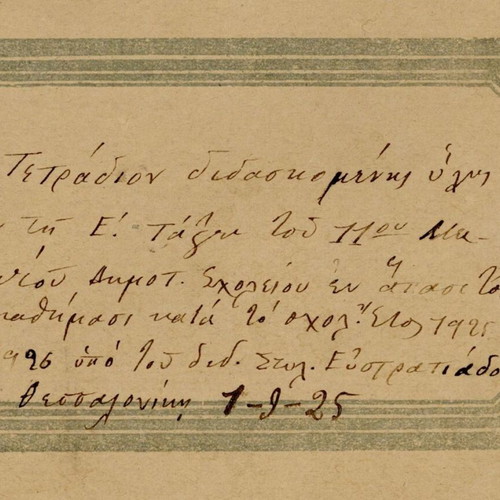 Τετράδιον διδασκομένης ὕλης
τῇ Ε! τάξει τοῦ 11ου Μι-
κτοῦ Δημοτ. Σχολείου ἐν ἅπασι το
μαθήμασι κατά τό σχολ. Ἔτος 1925
926 ὑπό τοῦ διδ. Στυλ. Εὐστρατιάδο
Θεσσαλονίκη 1-9-25